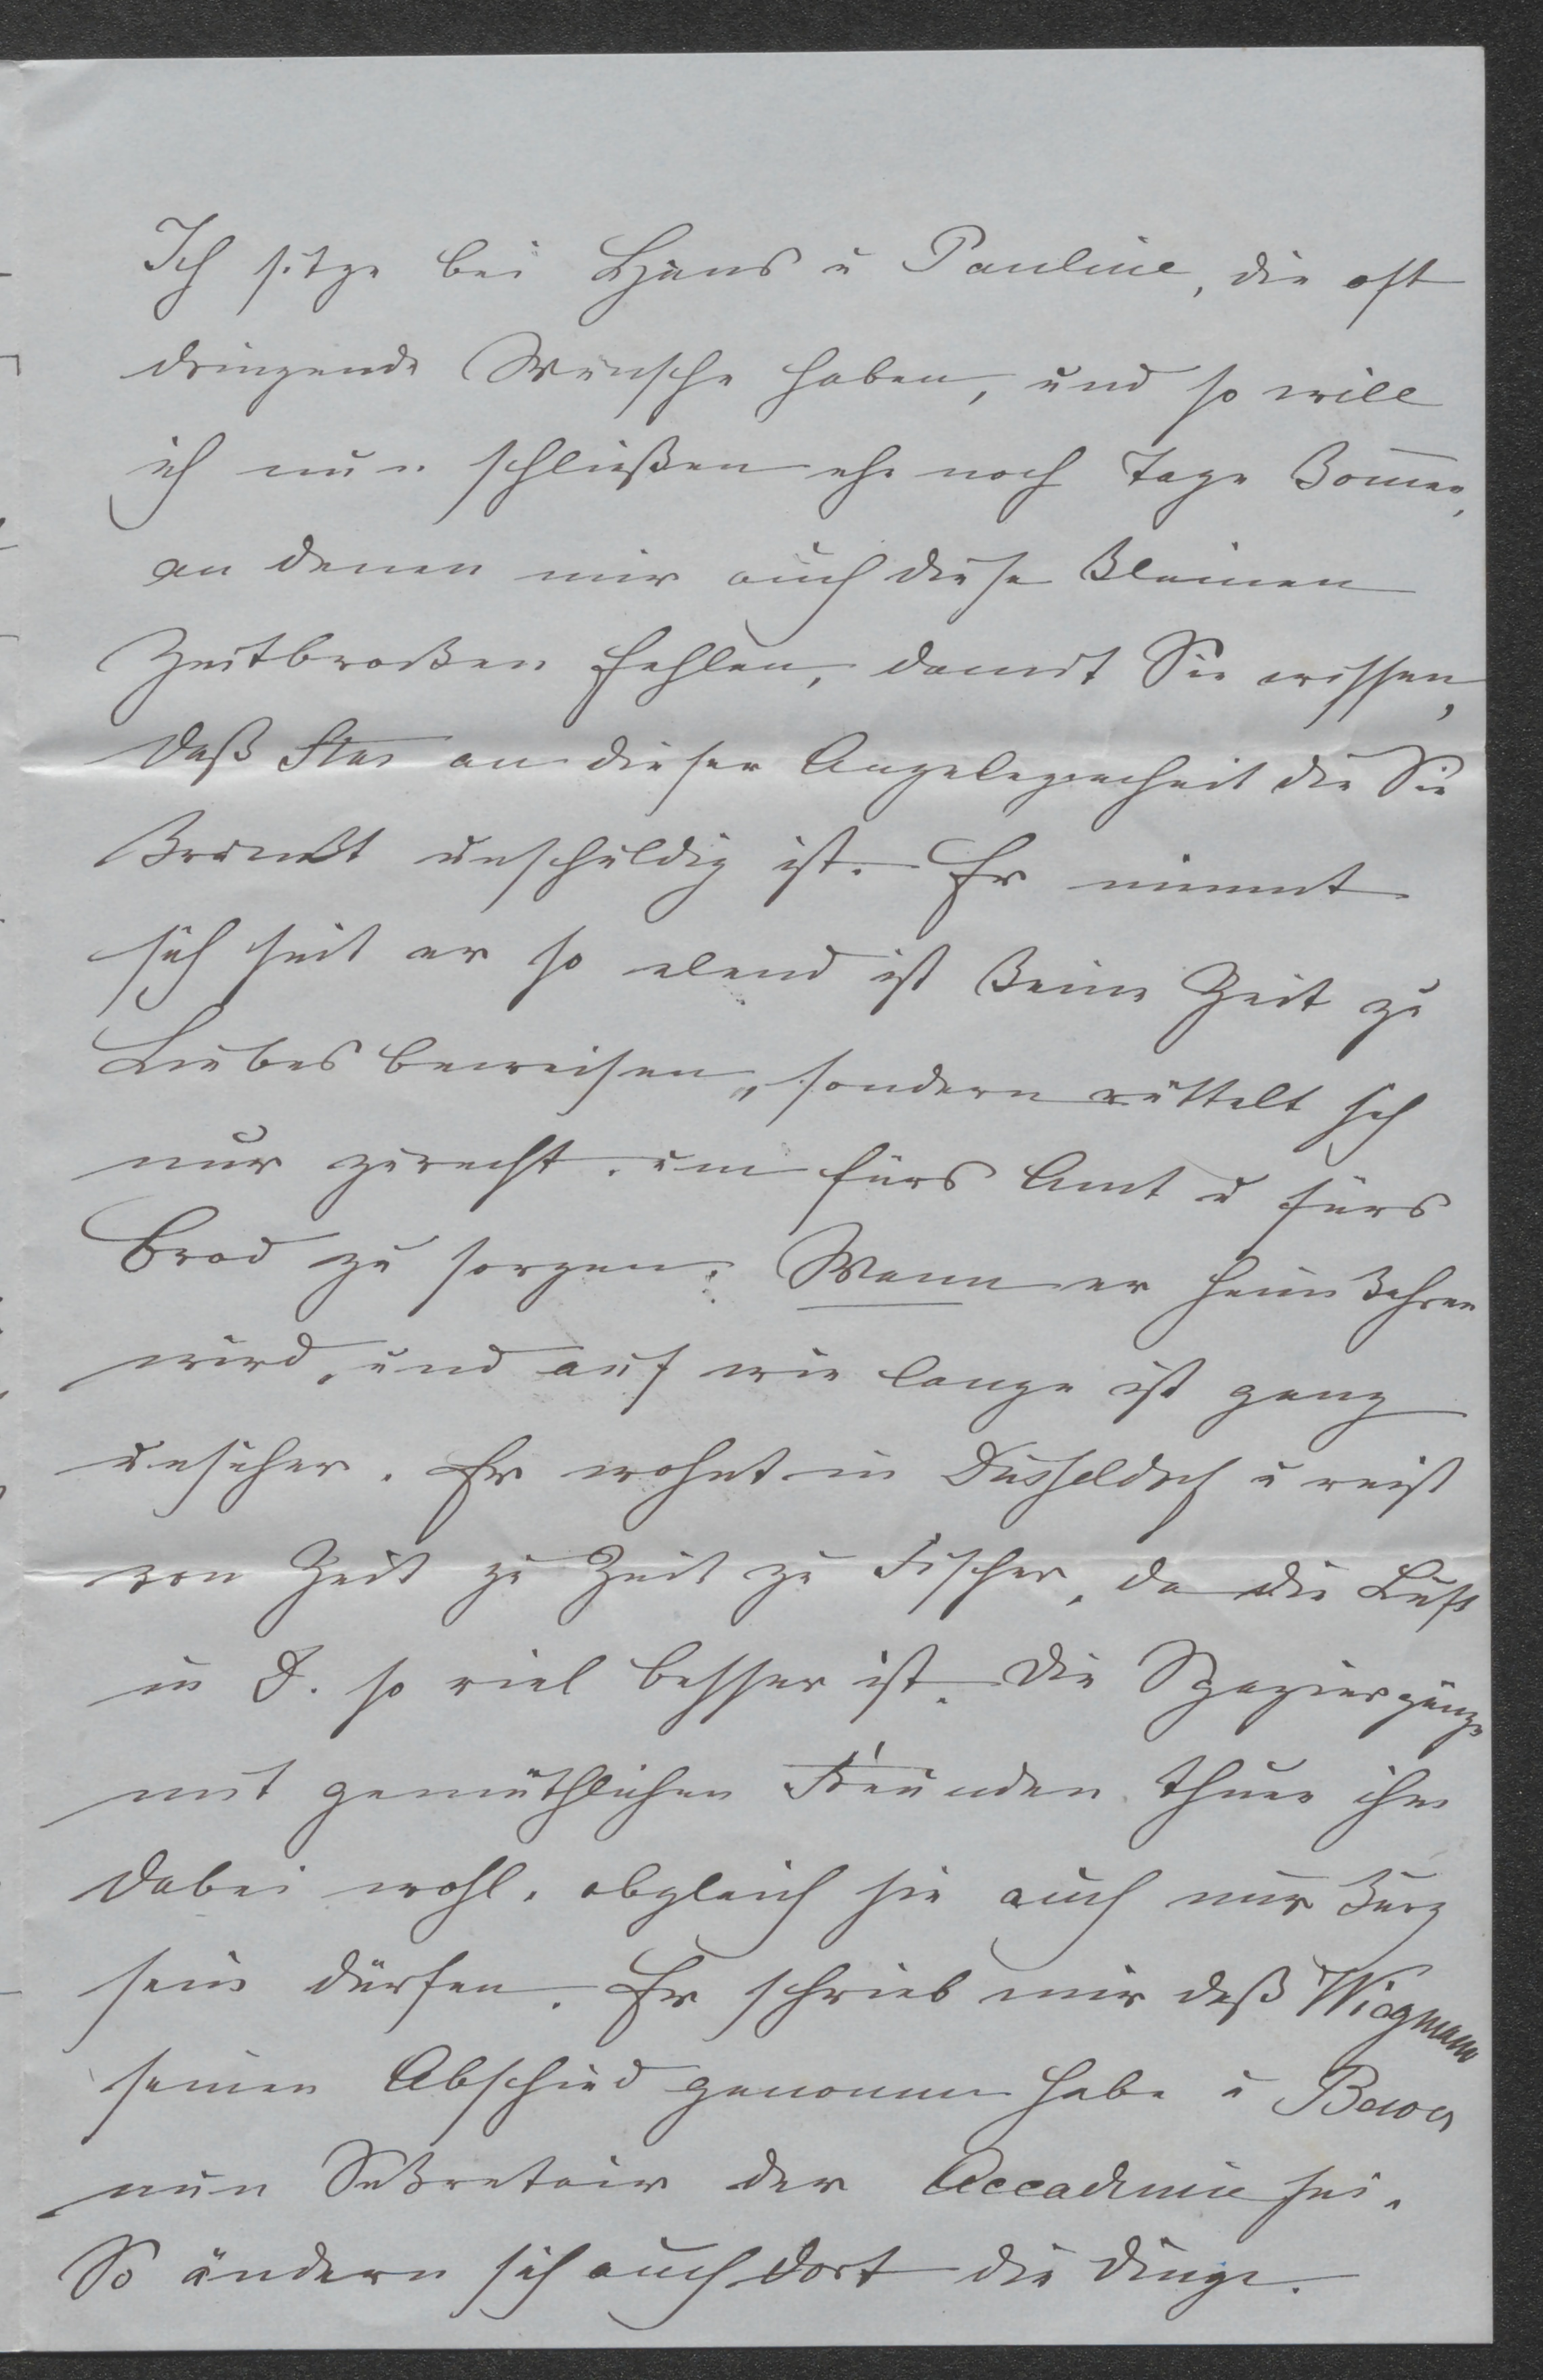 Ich sitze bei Hans u Pauline, die oft
dringende Wünsche haben, und so will
ich nun schließen ehe noch Tage kom̄en,
an denen mir auch diese kleinen
Zeitbrocken fehlen, damit Sie wissen,
daß an dieser Angelegenheit die Sie
kränkt unschuldig ist. Er nimmt
sich seit er so elend ist keine Zeit zu
Liebesbeweisen, sondern rüttelt sich
nur zurecht. um fürs Amt u fürs
Brod zu sorgen. Wann er heimkehren
wird, und auf wie lange ist ganz
unsicher. Er wohnt in Düsseldorf u reist
von Zeit zu Zeit zu Fischer, da die Luft
in D. so viel besser ist. Die Spaziergänge
mit gemüthlichen Freunden thuen ihm
dabei wohl, obgleich sie auch nur kurz
sein dürfen. Er schrieb mir daß Wiegmann
seinen Abschied genommen habe u Bewer
nun Sekretair der Accademie sei.
So ändern sich auch dort die Dinge.